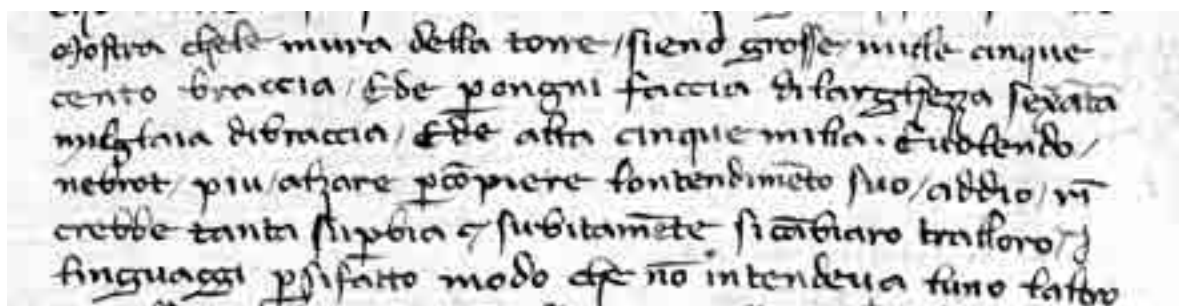 Mostra chele mura della torre / sieno grosse mille cinque
cento braccia / Ede p ongni faccia dilarghezza sexāta
miglaia dibraccia / Ede alta cinque milia . Euolendo /
nebrot / piu / alzare p cōpiere lontendimēto suo / addio / rī
crebbe tanta supbia & subitamēte sicābiaro tralloro / j
linguaggi p sifatto modo che nō intendeua luno laltro